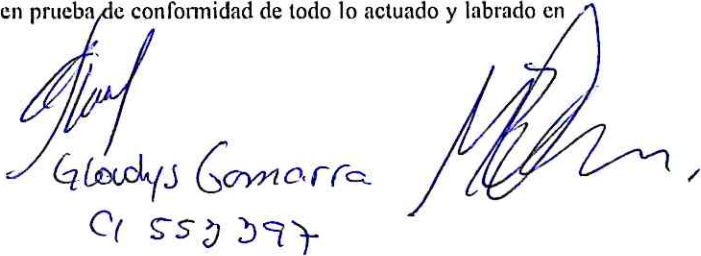 en prueba de conformidad de todo lo actuado y labrado en
Gladys Gamarra
CI 553397